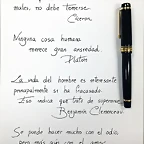 males, no debe temerse.
Ciceron.
Ninguna cosa humana
merece gran ansiedad.
Platón
La vida del hombre es interesante
principalmente si ha fracasado.
Eso indica que trató de superarse.
Benjamin Clemenceau
Se puede hacer mucho con el odio,
pero más aún con el amor